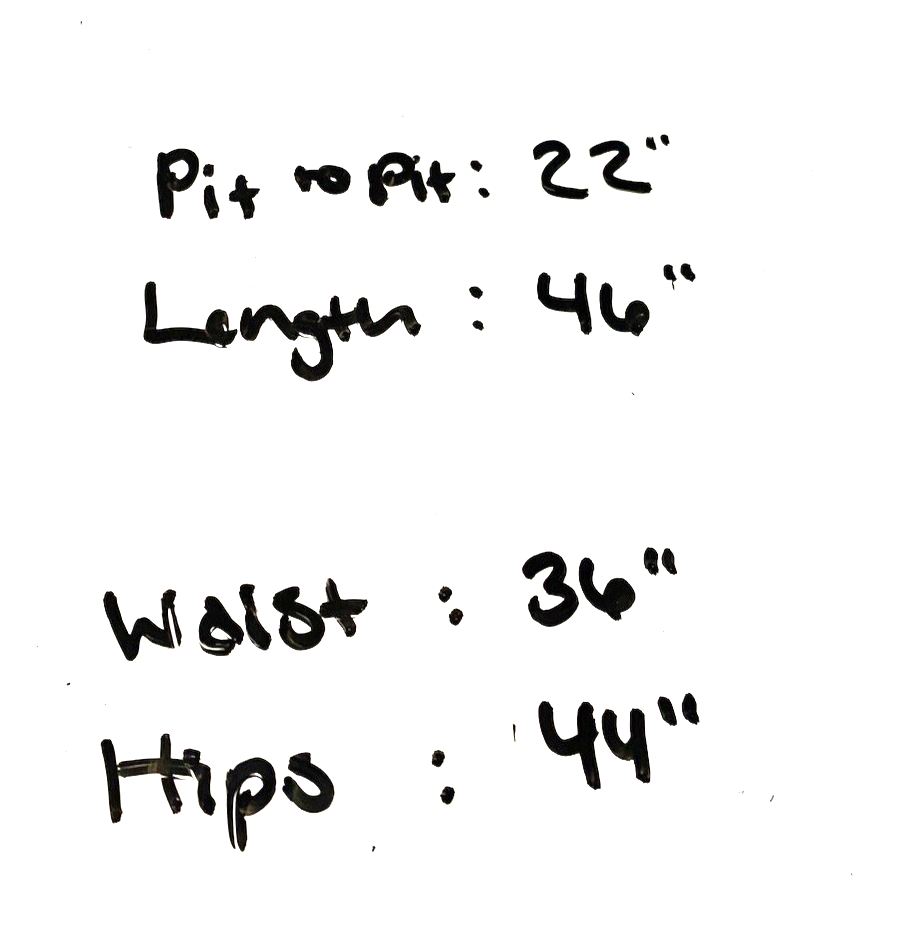 Pit to Pit: 22"
Length : 46"
Waist : 36"
Hips : 44"